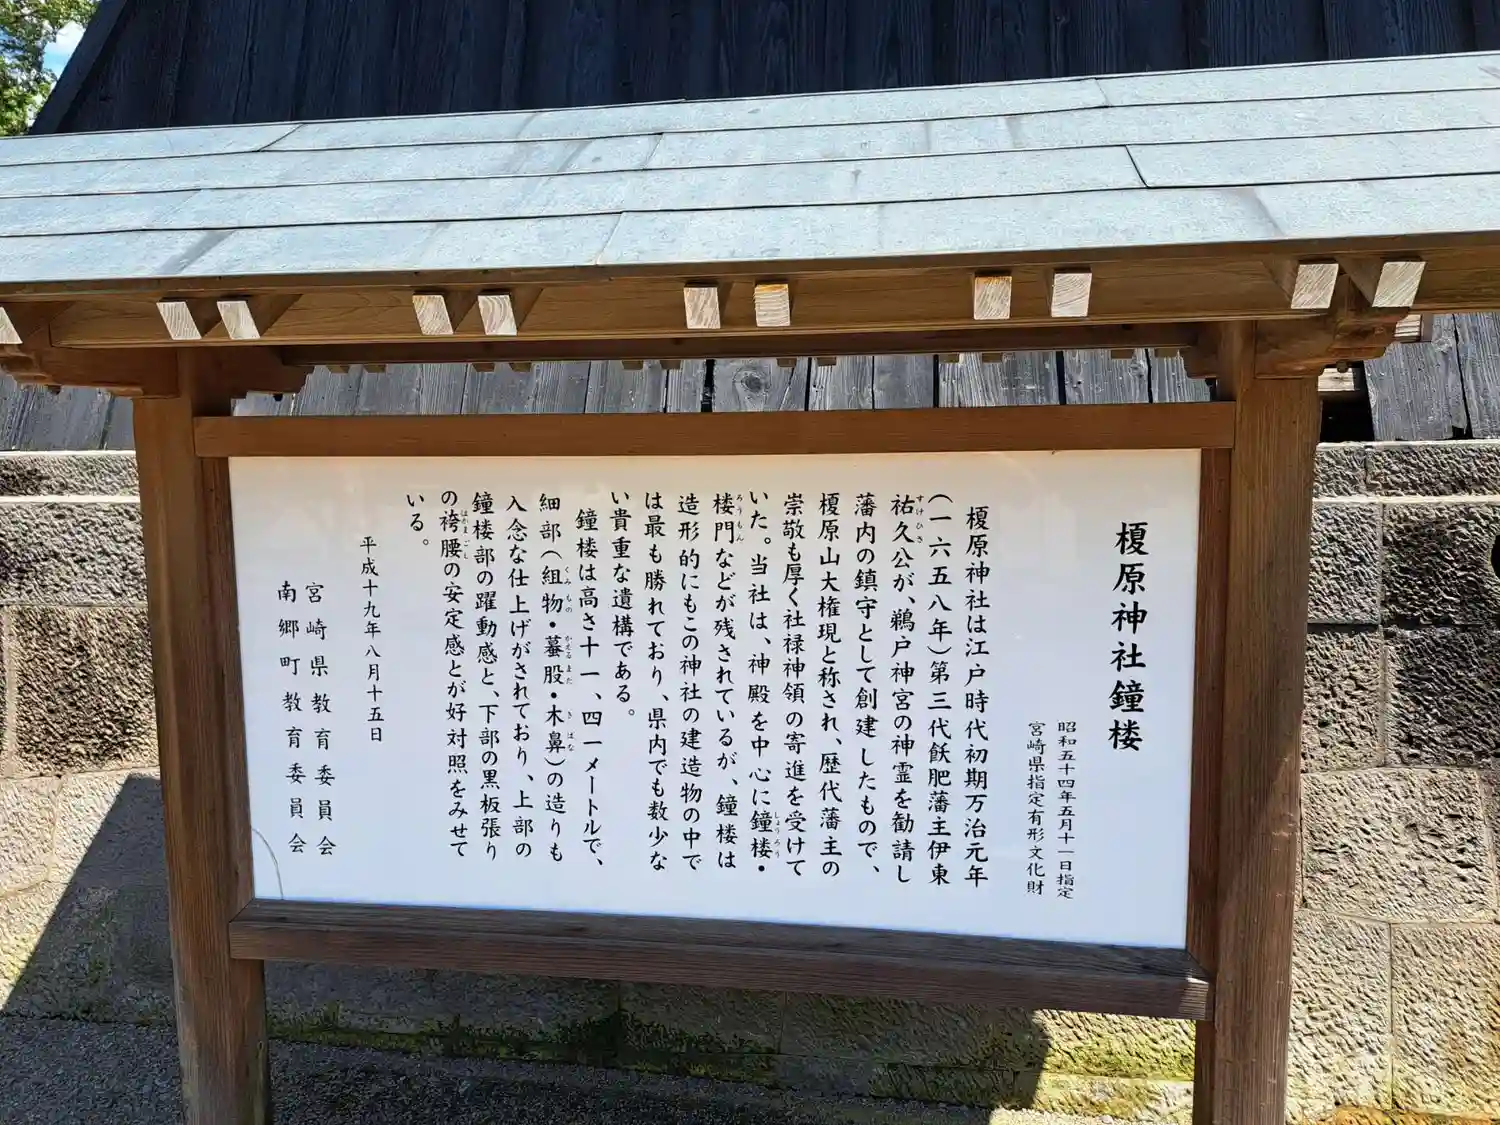 榎原神社鐘楼
昭和五十四年五月十一日指定
宮崎県指定有形文化財
榎原神社は江戸時代初期万治元年
(一六五八年)第三代飫肥藩主伊東
祐久公が、鵜戸神宮の神霊を勧請し
すけひさ
藩内の鎮守として創建したもので、
榎原山大権現と称され、歴代藩主の
崇敬も厚く社禄神領の寄進を受けて
いた。当社は、神殿を中心に鐘楼・
しょうろう
楼門などが残されているが、鐘楼は
ろうもん
造形的にもこの神社の建造物の中で
は最も勝れており、県内でも数少な
い貴重な遺構である。
鐘楼は高さ十一、四一メートルで、
細部(組物・蟇股・木鼻)の造りも
くみもの かえるまた きばな
入念な仕上げがされており、上部の
鐘楼部の躍動感と、下部の黒板張り
の袴腰の安定感とが好対照をみせて
はかまごし
いる。
平成十九年八月十五日
宮崎県教育委員会
南郷町教育委員会